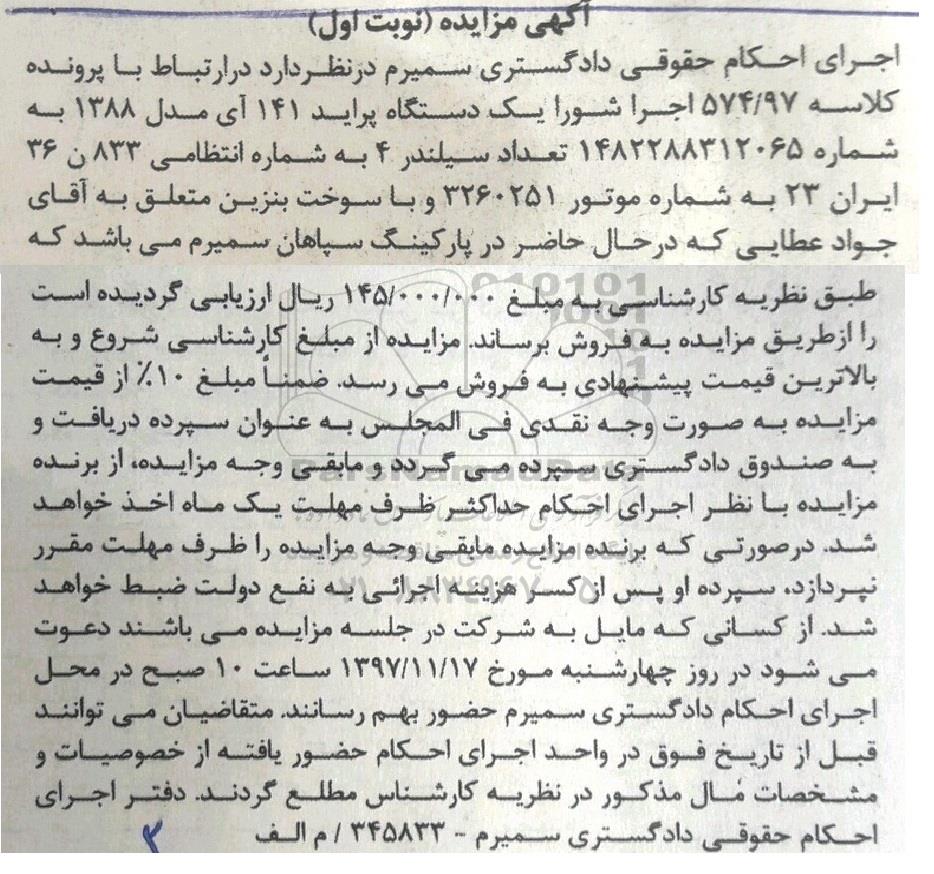 آگهی مزایده (نوبت اول)
اجرای احکام حقوقی دادگستری سمیرم درنظردارد درارتباط با پرونده
کلاسه ۵۷۴/۹۷ اجرا شورا یک دستگاه پراید ۱۴۱ آی مدل ۱۳۸۸ به
شماره ۱۴۸۲۲۸۸۳۱۲۰۶۵ تعداد سیلندر ۴ به شماره انتظامی ۸۳۳ ن ۳۶
ایران ۲۳ به شماره موتور ۳۲۶۰۲۵۱ و با سوخت بنزین متعلق به آقای
جواد عطایی که درحال حاضر در پارکینگ سپاهان سمیرم می باشد که
طبق نظریه کارشناسی به مبلغ ۱۴۵/۰۰۰/۰۰۰ ریال ارزیابی گردیده است
را ازطریق مزایده به فروش برساند. مزایده از مبلغ کارشناسی شروع و به
بالاترین قیمت پیشنهادی به فروش می رسد. ضمناً مبلغ ۱۰٪ از قیمت
مزایده به صورت وجه نقدی فی المجلس به عنوان سپرده دریافت و
به صندوق دادگستری سپرده می گردد و مابقی وجه مزایده، از برنده
مزایده با نظر اجرای احکام حداکثر ظرف مهلت یک ماه اخذ خواهد
شد. درصورتی که برنده مزایده مابقی وجه مزایده را ظرف مهلت مقرر
نپردازد، سپرده او پس از کسر هزینه اجرائی به نفع دولت ضبط خواهد
شد. از کسانی که مایل به شرکت در جلسه مزایده می باشند دعوت
می شود در روز چهارشنبه مورخ ۱۳۹۷/۱۱/۱۷ ساعت ۱۰ صبح در محل
اجرای احکام دادگستری سمیرم حضور بهم رسانند. متقاضیان می توانند
قبل از تاریخ فوق در واحد اجرای احکام حضور یافته از خصوصیات و
مشخصات مال مذکور در نظریه کارشناس مطلع گردند. دفتر اجرای
احکام حقوقی دادگستری سمیرم - ۳۴۵۸۳۳ / م الف
۳